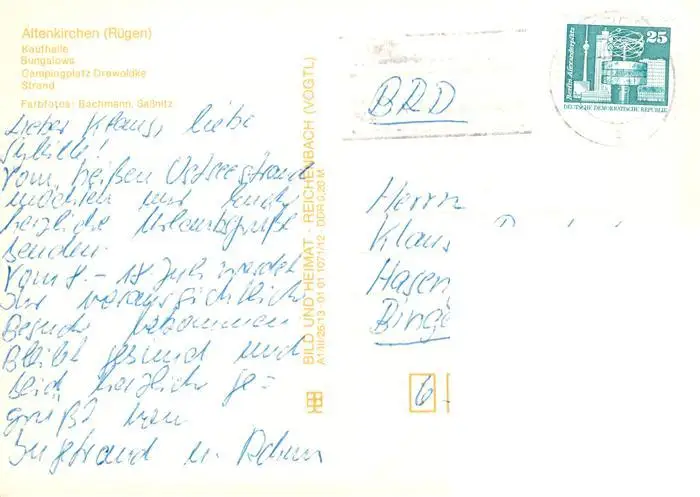 Altenkirchen (Rügen)
Kaufhalle
Bungalows
Campingplatz Drewoldke
Strand
Farbfotos: Bachmann, Saßnitz
Lieber Klaus, liebe
Vom heißen Ostseestrand
möchten wir Euch
herzliche Urlaubsgrüße
senden.
Vom 8. - 18. Juli werdet
Ihr voraussichtlich
Besuch bekommen
Bleibt gesund und
seid herzlich ge=
grüßt von
u.
BILD UND HEIMAT · REICHENBACH (VOGTL)
A1/III/26/13 01 01 1071/12 DDR 0,20 M
BRD
25
Berlin, Alexanderplatz
DEUTSCHE DEMOKRATISCHE REPUBLIK
Herrn
Klaus
Hasen
Binge
6